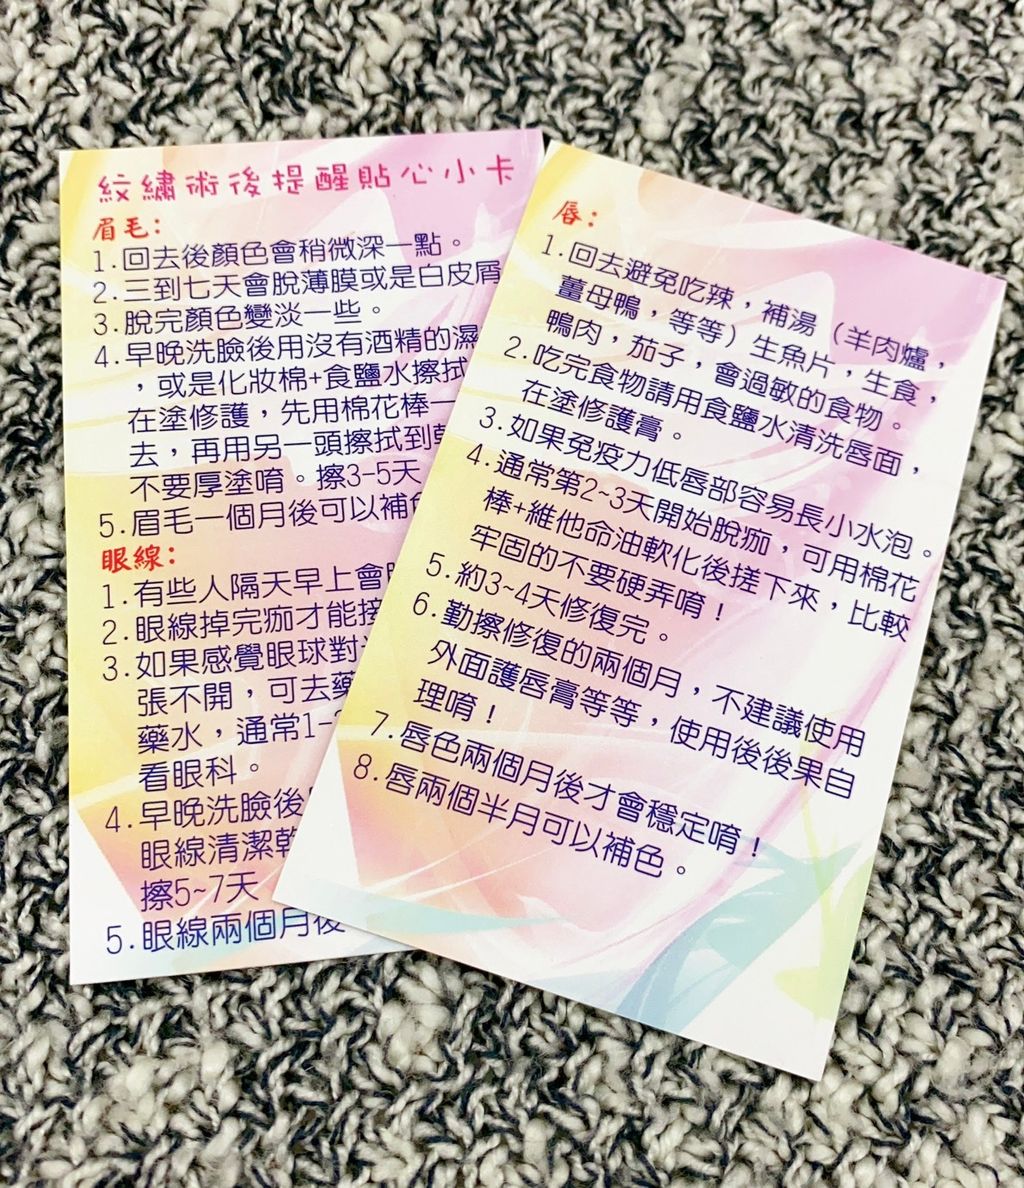 紋繡術後提醒貼心小卡
眉毛:
1.回去後顏色會稍微深一點。
2.三到七天會脫薄膜或是白皮屑
3.脫完顏色變淡一些。
4.早晚洗臉後用沒有酒精的濕
，或是化妝棉+食鹽水擦拭
在塗修護，先用棉花棒一
去，再用另一頭擦拭到
不要厚塗唷。擦3-5天
5.眉毛一個月後可以補
眼線:
1.有些人隔天早上會
2.眼線掉完痂才能接
3.如果感覺眼球對
張不開，可去藥
藥水，通常1-
看眼科。
4.早晚洗臉後
眼線清潔乾
擦5~7天
5.眼線兩個月後
唇:
1.回去避免吃辣，補湯（羊肉爐，
薑母鴨，等等）生魚片，生食，
鴨肉，茄子，會過敏的食物。
2.吃完食物請用食鹽水清洗唇面，
在塗修護膏。
3.如果免疫力低唇部容易長小水泡。
4.通常第2~3天開始脫痂，可用棉花
棒+維他命油軟化後搓下來，比較
牢固的不要硬弄唷！
5.約3~4天修復完。
6.勤擦修復的兩個月，不建議使用
外面護唇膏等等，使用後後果自
理唷！
7.唇色兩個月後才會穩定唷！
8.唇兩個半月可以補色。